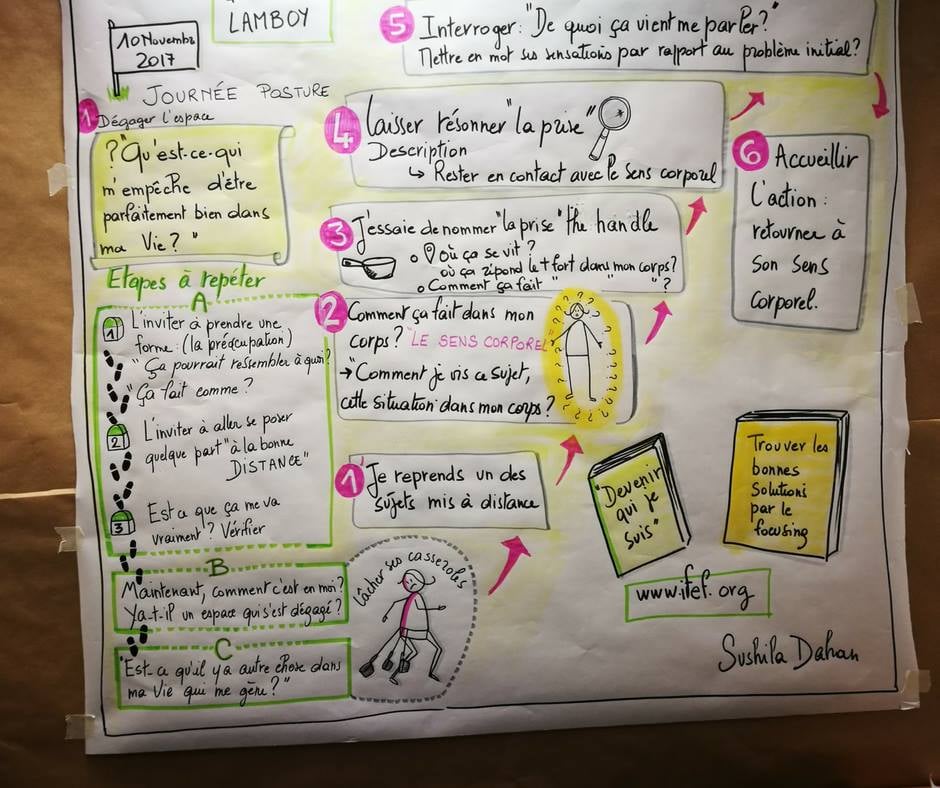 LAMBOY
10 Novembre
2017
JOURNÉE POSTURE
1 Dégager l'espace
? "Qu'est-ce-qui
m'empêche d'être
parfaitement bien dans
ma Vie ? "
Etapes à repéter
A
1 L'inviter à prendre une
forme : (la préoccupation)
"Ça pourrait ressembler à quoi?
"Ça fait comme ?
2 L'inviter à aller se poser
quelque part "à la bonne
DISTANCE"
3 Est ce que ça me va
vraiment ? Vérifier
B
Maintenant, comment c'est en moi?
Ya-t-il un espace qui s'est dégagé ?
C
"Est-ce qu'il y a autre chose dans
ma Vie qui me gêne ?"
lâcher ses casseroles
1' Je reprends un des
sujets mis à distance
2 Comment ça fait dans mon
corps ? "LE SENS CORPOREL"
→ "Comment je vis ce sujet,
cette situation dans mon corps ?
3 J'essaie de nommer "la prise" "the handle
où ça se vit ?
où ça répond le + fort dans mon corps?
Comment ça fait " " " ?
4 Laisser résonner "la prise"
Description
↳ Rester en contact avec le sens corporel
5 Interroger : "De quoi ça vient me parler?"
Mettre en mot ses sensations par rapport au problème initial?
6 Accueillir
l'action :
retourner à
son sens
corporel.
"Devenir
qui je
suis"
Trouver les
bonnes
solutions
par le
focusing
www.ifef.org
Sushila Dahan